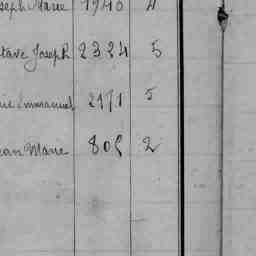 seph Marie 1940 4
stave Joseph 2324 5
rie Emmanuel 2171 5
ean Marie 805 2